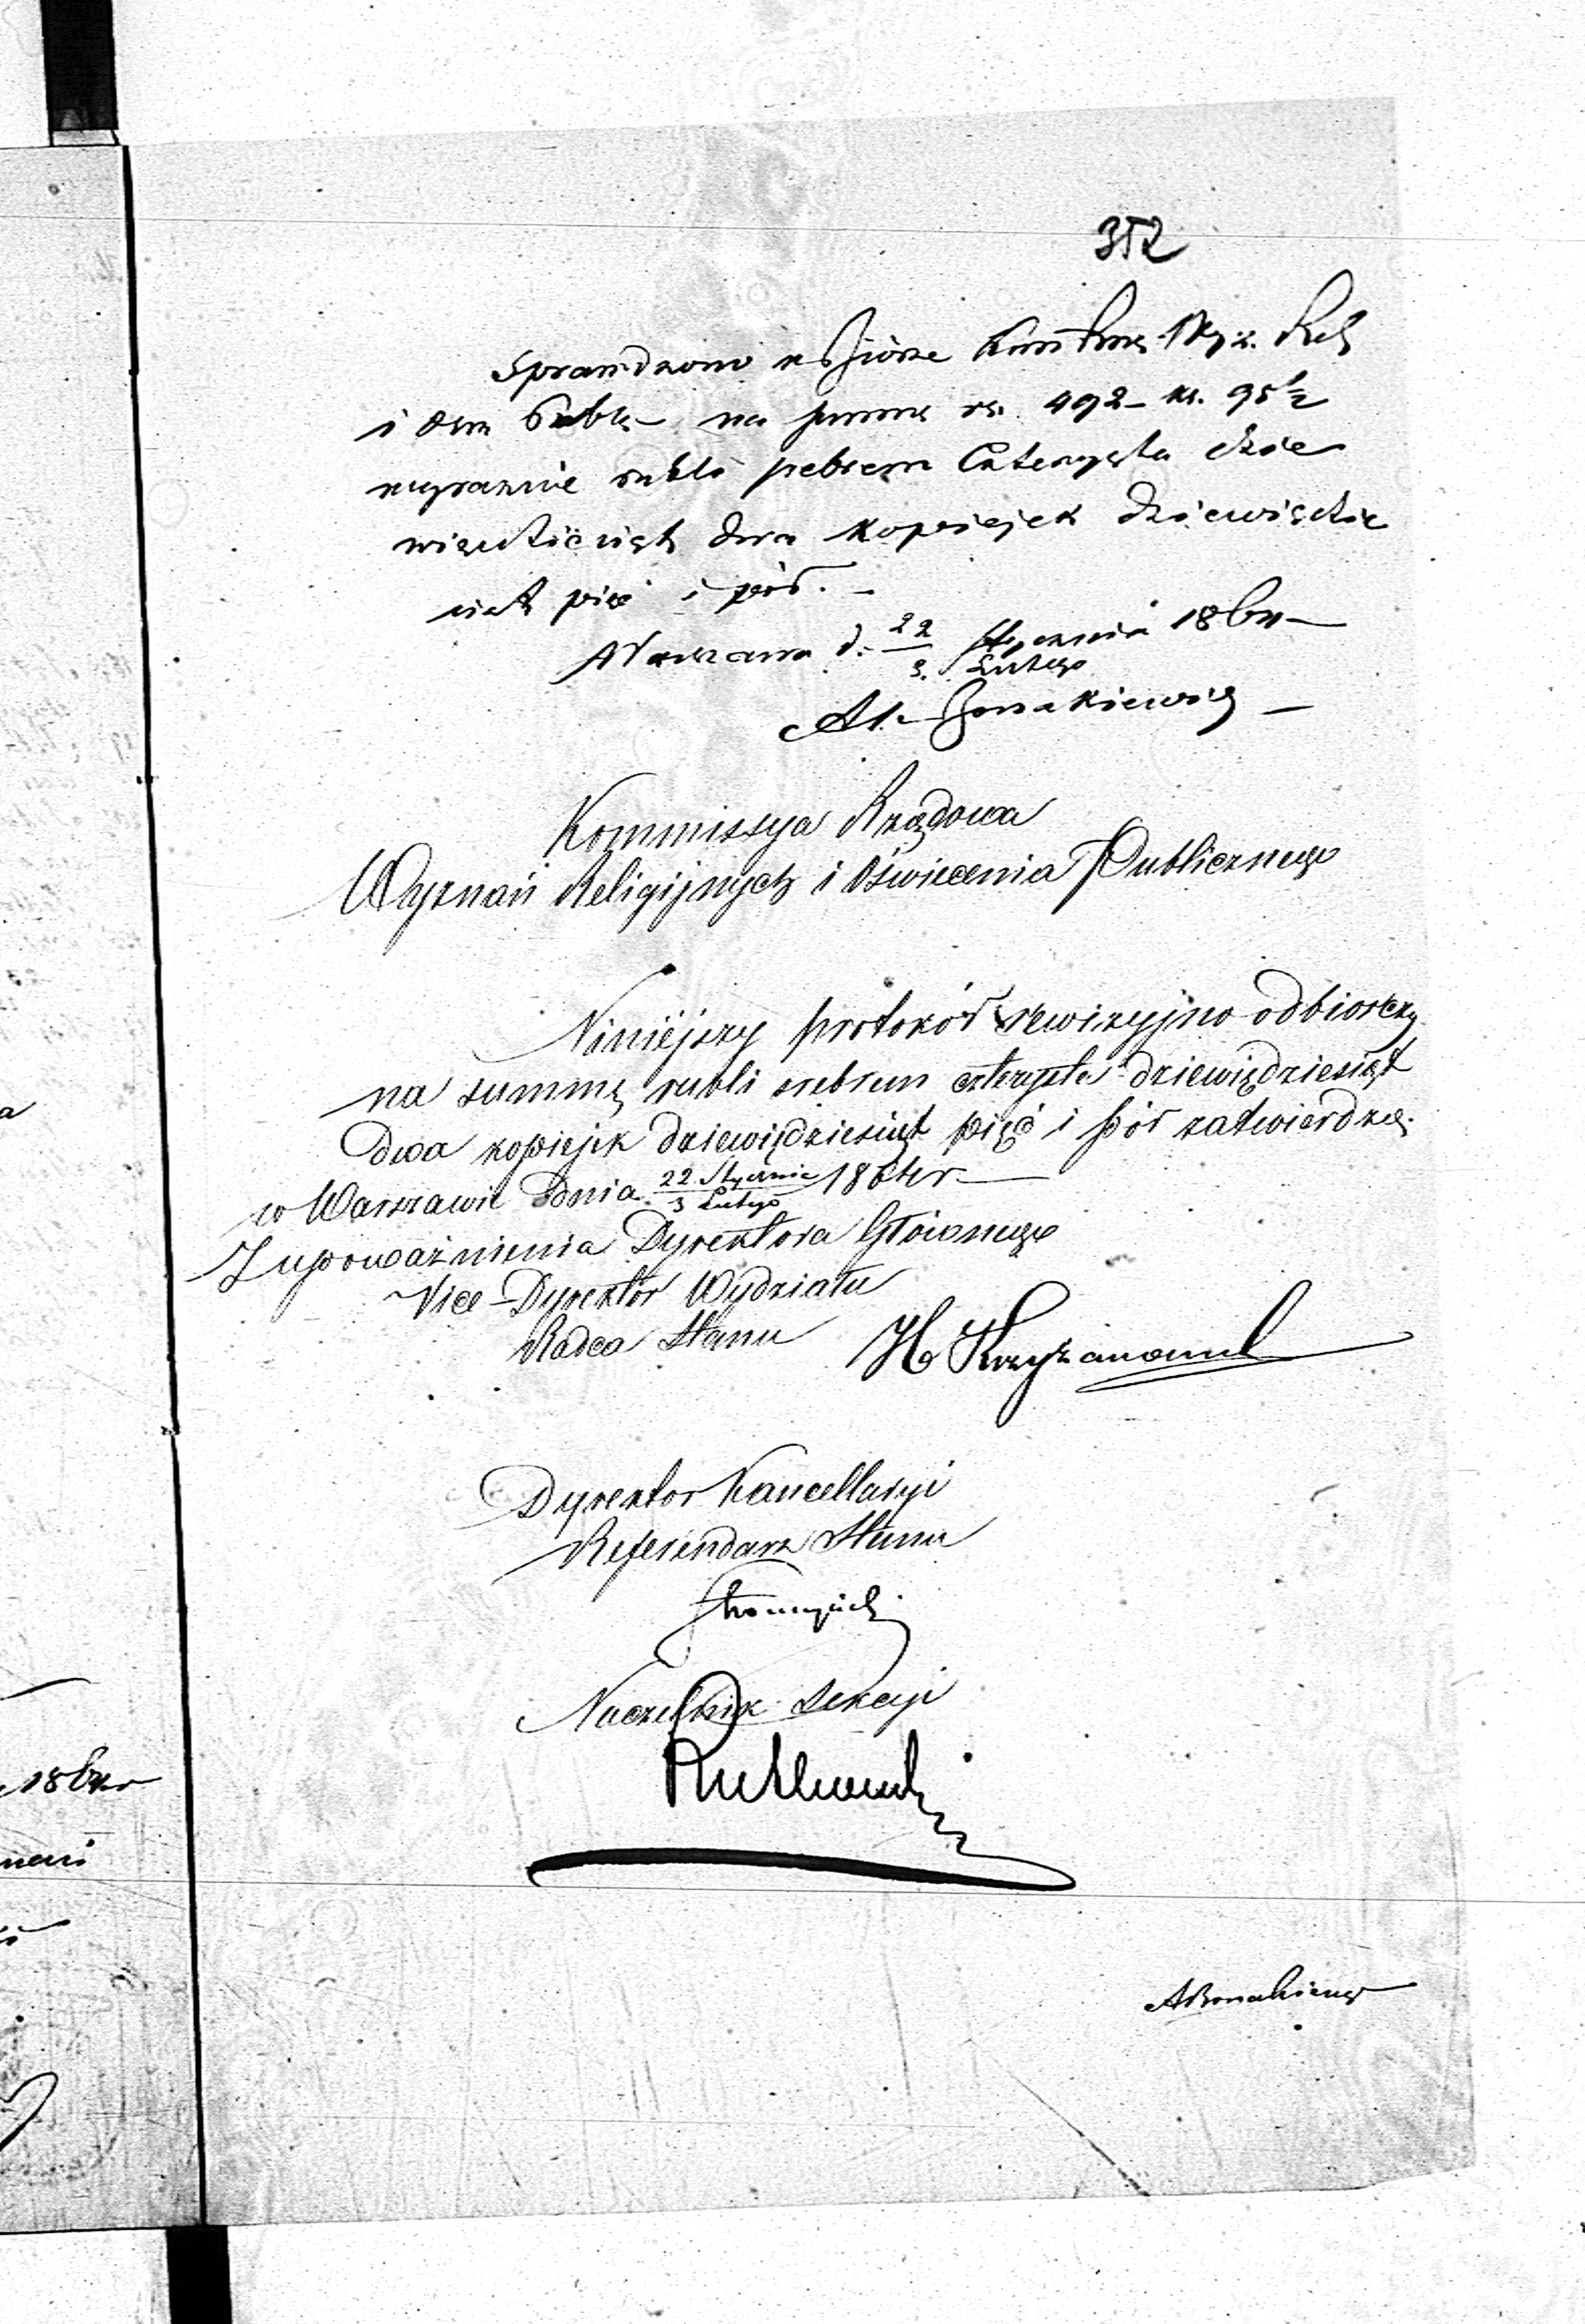 352
Sprawdzono w Biórze Kontroli Wyz. Rel
i Ośw Publ. na summę rs. 492 k. 95½
wyraznie rubli srebrem Czterysta dzie
więćdziesiąt dwa kopiejek dziewięćdzie
siąt pięć i pół. –
Warszawa d. 22/3. Stycznia/Lutego 186
Kommissya Rządowa
Wyznań Religijnych i Oświecenia Publicznego
Niniéjszy protokół rewizyjno odbiorczy
na summę rubli srebrem czterysta dziewięćdziesiąt
dwa kopiejek dziewięćdziesiąt pięć i pół zatwierdza.
w Warszawie dnia 22 Stycznia/3 Lutego 186
Z upoważnienia Dyrektora Głównego
Vice-Dyrektor Wydziału
Radca Stanu H Krzyżanowsk
Dyrektor Kancellaryi
Referendarz Stanu
Naczelnik Sekcyi